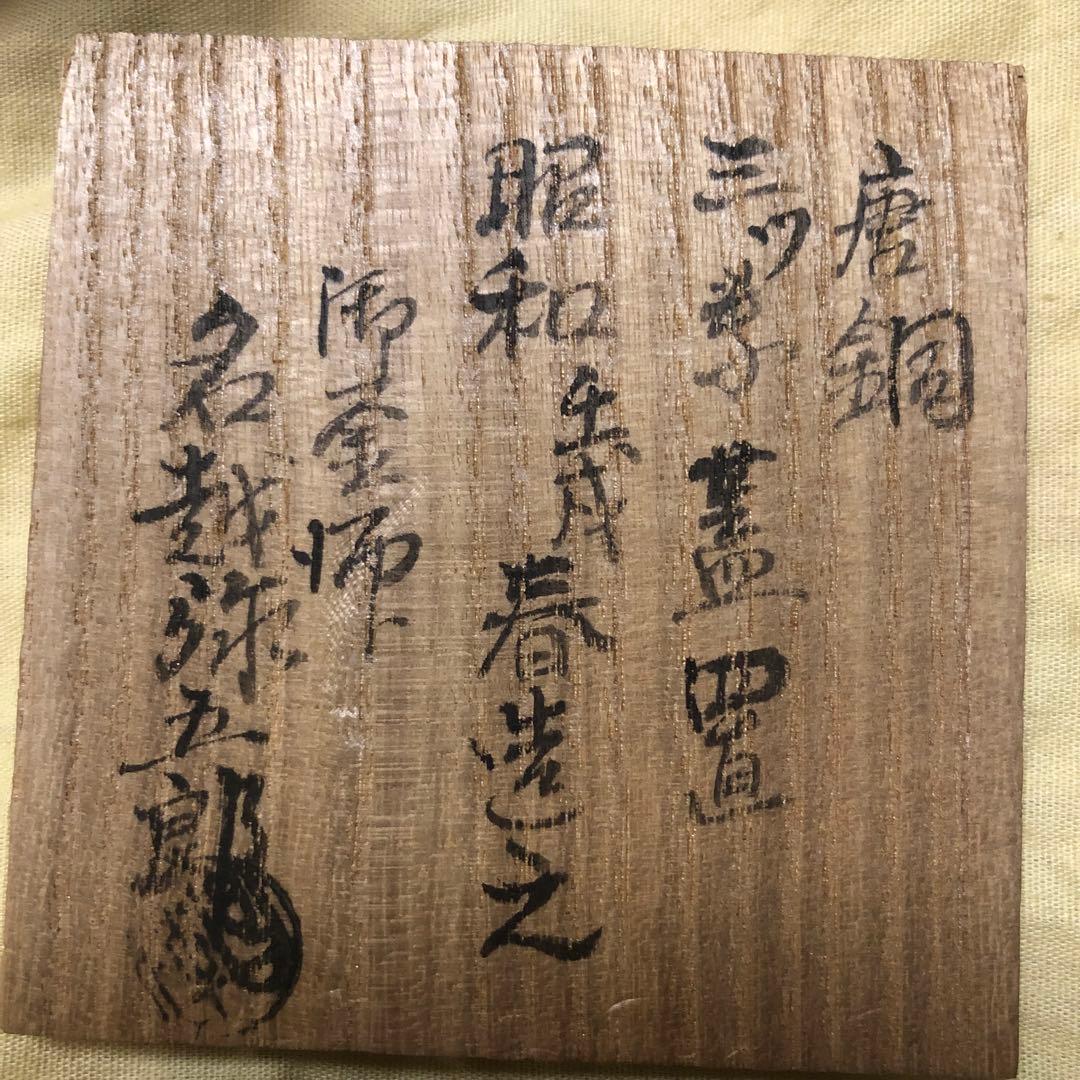 唐銅
三ツ葉蓋置
昭和壬戌春造之
御釜師
名越弥五郎